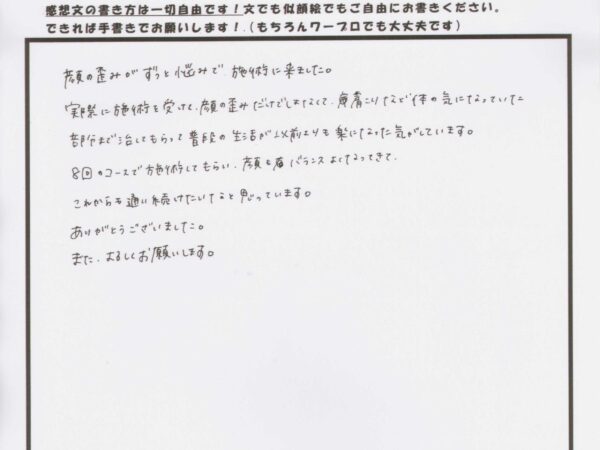 感想文の書き方は一切自由です！文でも似顔絵でもご自由にお書きください。
できれば手書きでお願いします！（もちろんワープロでも大丈夫です）
顔の歪みがずっと悩みで、施術に来ました。
実際に施術を受けて、顔の歪みだけでしなくて、肩こりなど体の気になっていた
部分まで治してもらって普段の生活が以前よりも楽になった気がしています。
8回のコースで施術してもらい、顔も肩バランスよくなってきて、
これからも通い続けたいなと思っています。
ありがとうございました。
また、よろしくお願いします。